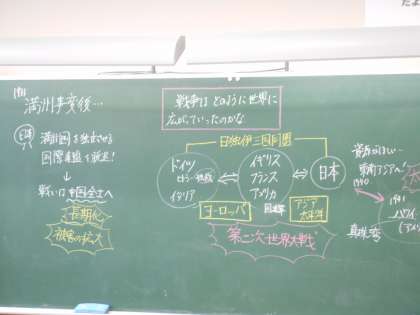 1931
満州事変後…
日本
満州国を独立させる
国際連盟を脱退!
↓
戦いは中国全土へ
長期化
被害の拡大
戦争はどのように世界に
広がっていったのかな
日独伊三国同盟
ドイツ
イタリア
⇔
イギリス
フランス
アメリカ
⇔
日本
ヨーロッパ
アジア
太平洋
第二次世界大戦
資源がほしい…
東南アジアへ!
1940
1941
ハワイ
真珠湾